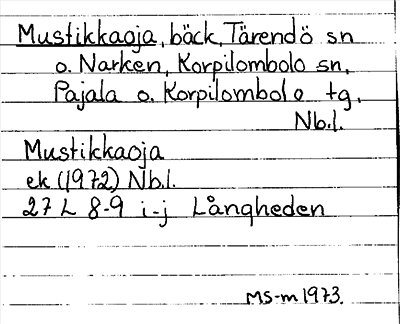 Mustikkaoja, bäck, Tärendö sn
o. Narken, Korpilombolo sn,
Pajala o. Korpilombolo tg,
Nb.l.
Mustikkaoja
ek (1972) Nb.l.
27 L 8-9 i-j Långheden
MS-m 1973.